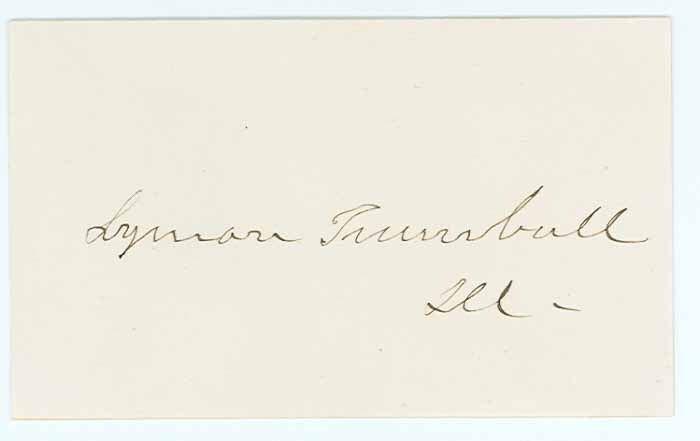 Lyman Trumbull
Ill -